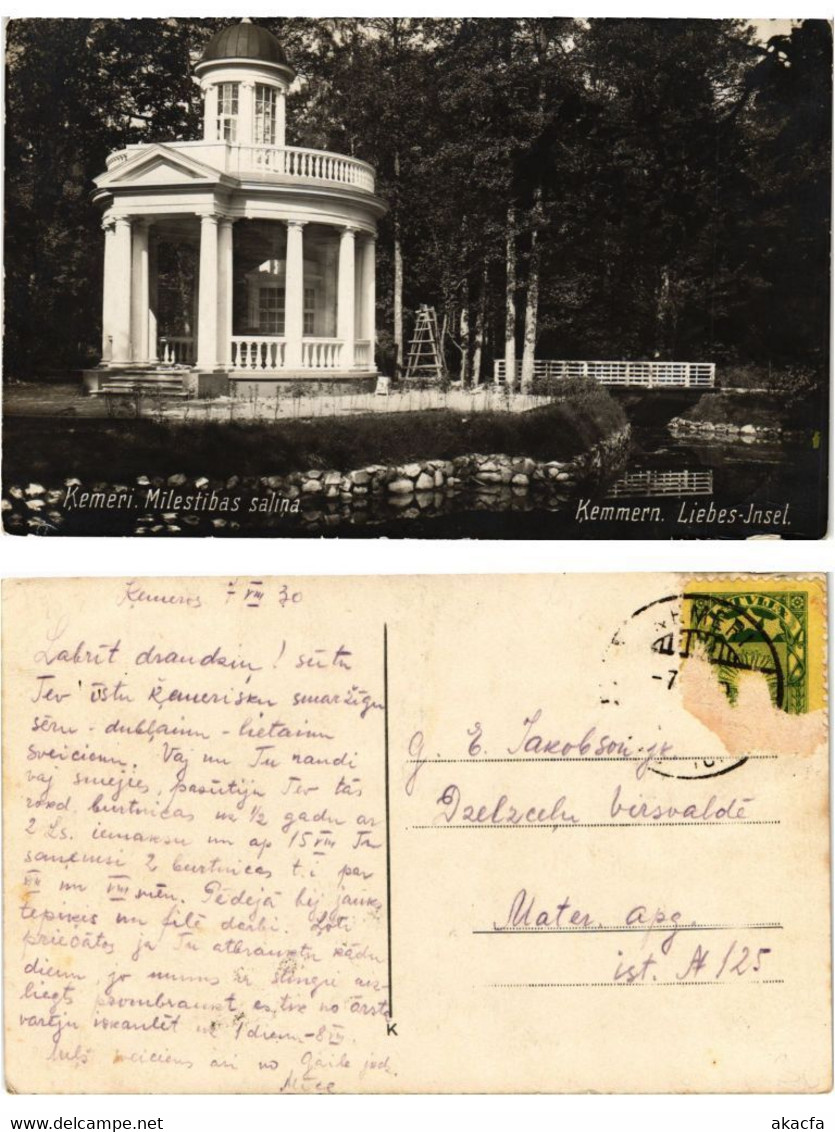 Ķemeri. Mīlestības saliņa
Ķemmern. Liebes-Jnsel.
Ķemeros 7 VIII 30
Labrīt draudziņ! sūtu
Tev īstu ķemerisku smaržīgu
sēru-dubļainu-lietainu
sveicienu. Vaj nu Tu raudi
vaj smejies, pasūtīju Tev tās
rokd. burtnīcas uz 1/2 gadu ar
2 Ls. iemaksu un ap 15 VIII Tu
saņemsi 2 burtnīcas t.i par
VII un VIII mēn. Pēdējā bij jauki
tepiķis un filē darbi. Ļoti
priecātos ja Tu atbrauktu kādu
dienu, jo mums ir stingri aiz-
liegts prombraukt, es tik no ārsta
varēju izkaulēt uz 1 dienu - 8
Mīļš sveiciens arī no
LATVIJA
ĶEMER
g. E. Jakobson jk.
Dzelzceļu virsvaldē
Mater. apg.
ist. № 125
K
www.delcampe.net
akacfa